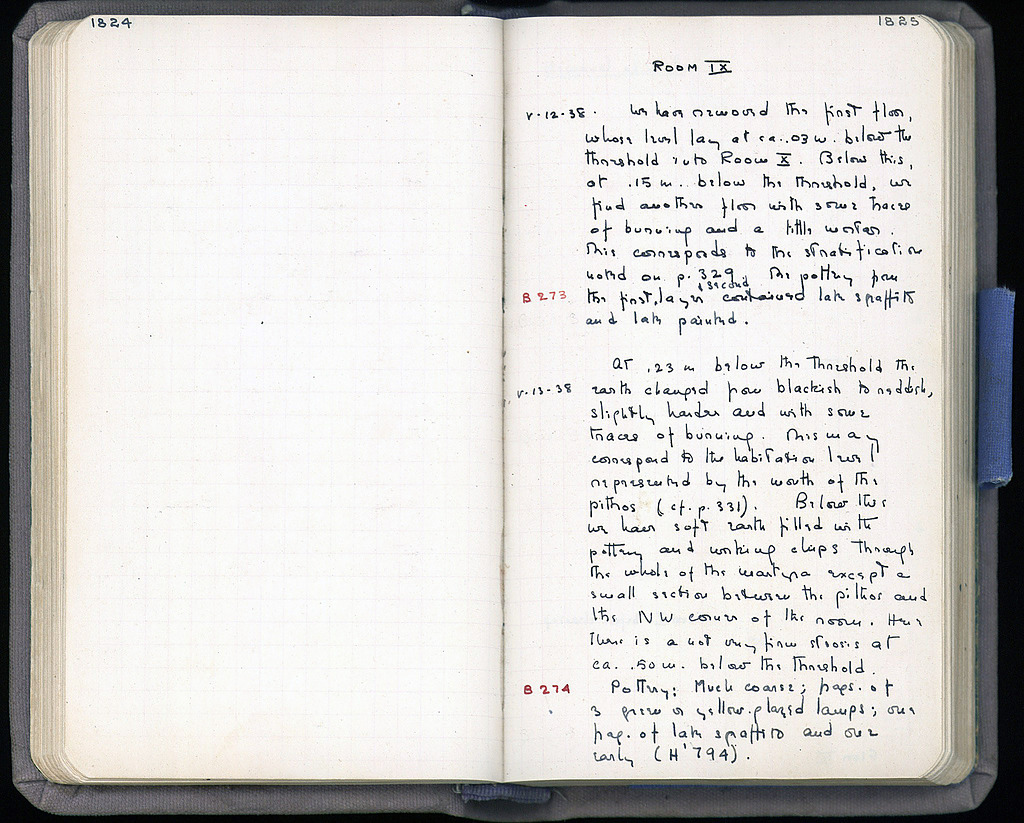 1824
1825
ROOM IX
V-12-38. We have removed the first floor,
whose level lay at ca. .03 m. below the
threshold into Room X. Below this,
at .15 m. below the threshold, we
find another floor with some traces
of burning and a little mortar.
This corresponds to the stratification
noted on p. 329. The pottery from
B 273 the first, second layer contained late sgraffito
and late painted.
At .23 m below the threshold the
V-13-38 earth changed from blackish to reddish,
slightly harder and with some
traces of burning. This may
correspond to the habitation level
represented by the mouth of the
pithos (cf. p. 331). Below this
we have soft earth filled with
pottery and working chips through
the whole of the area except a
small section between the pithos and
the NW corner of the room. Here
there is a not very firm strosis at
ca. .50 m. below the threshold.
B 274 Pottery: Much coarse; frags. of
3 green or yellow-glazed lamps; one
frag. of late sgraffito and one
early (H'794).